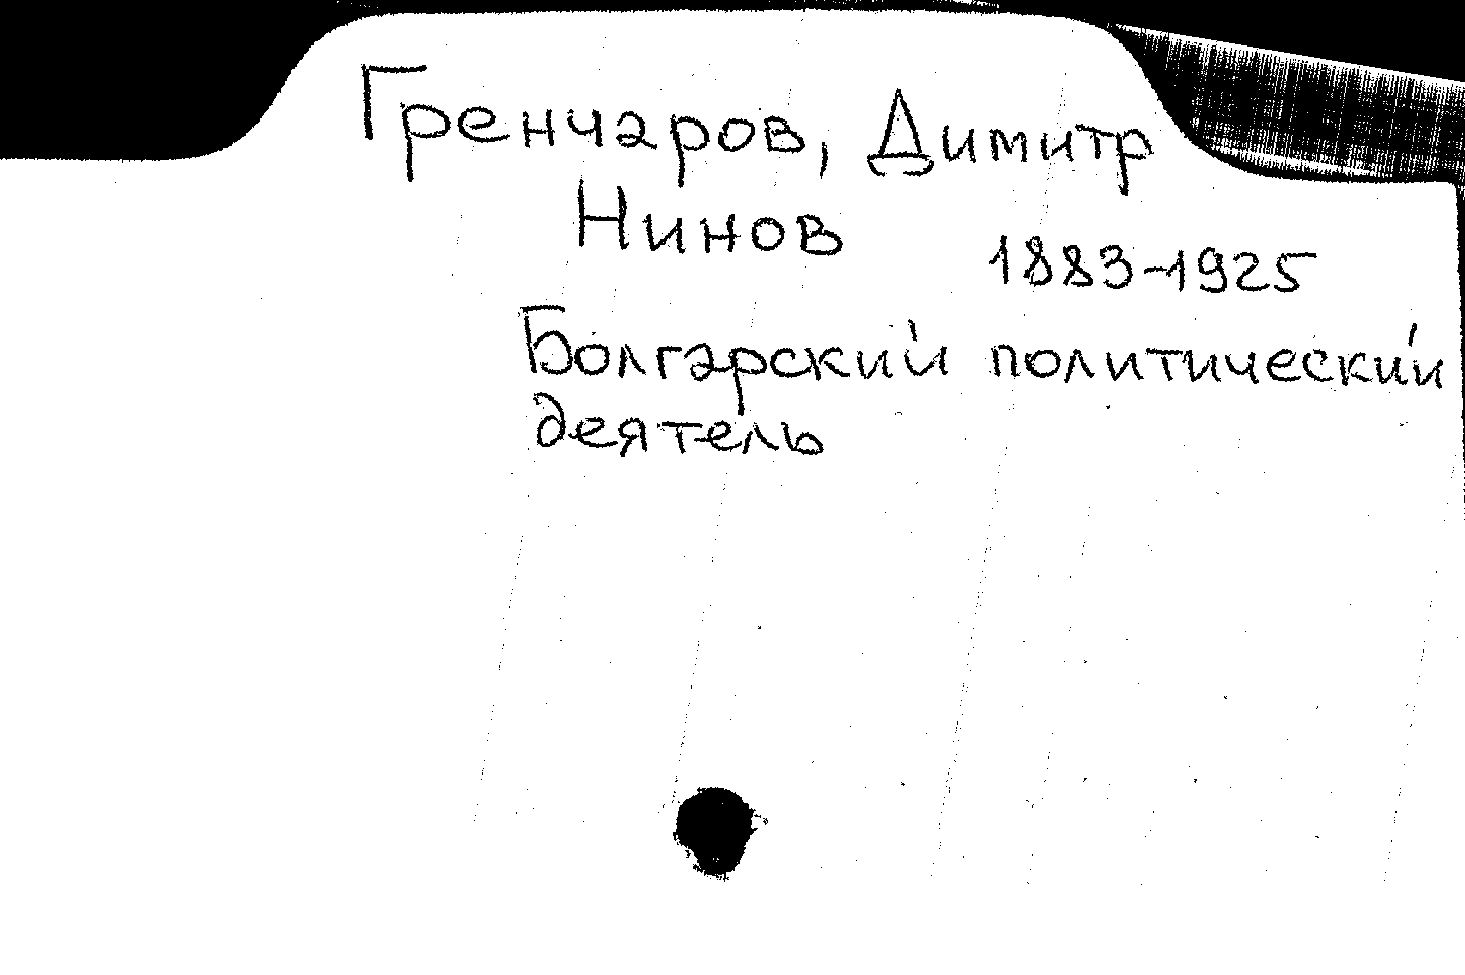 Гренчаров, Димитр
Нинов
1883-1925
Болгарский политический
деятель